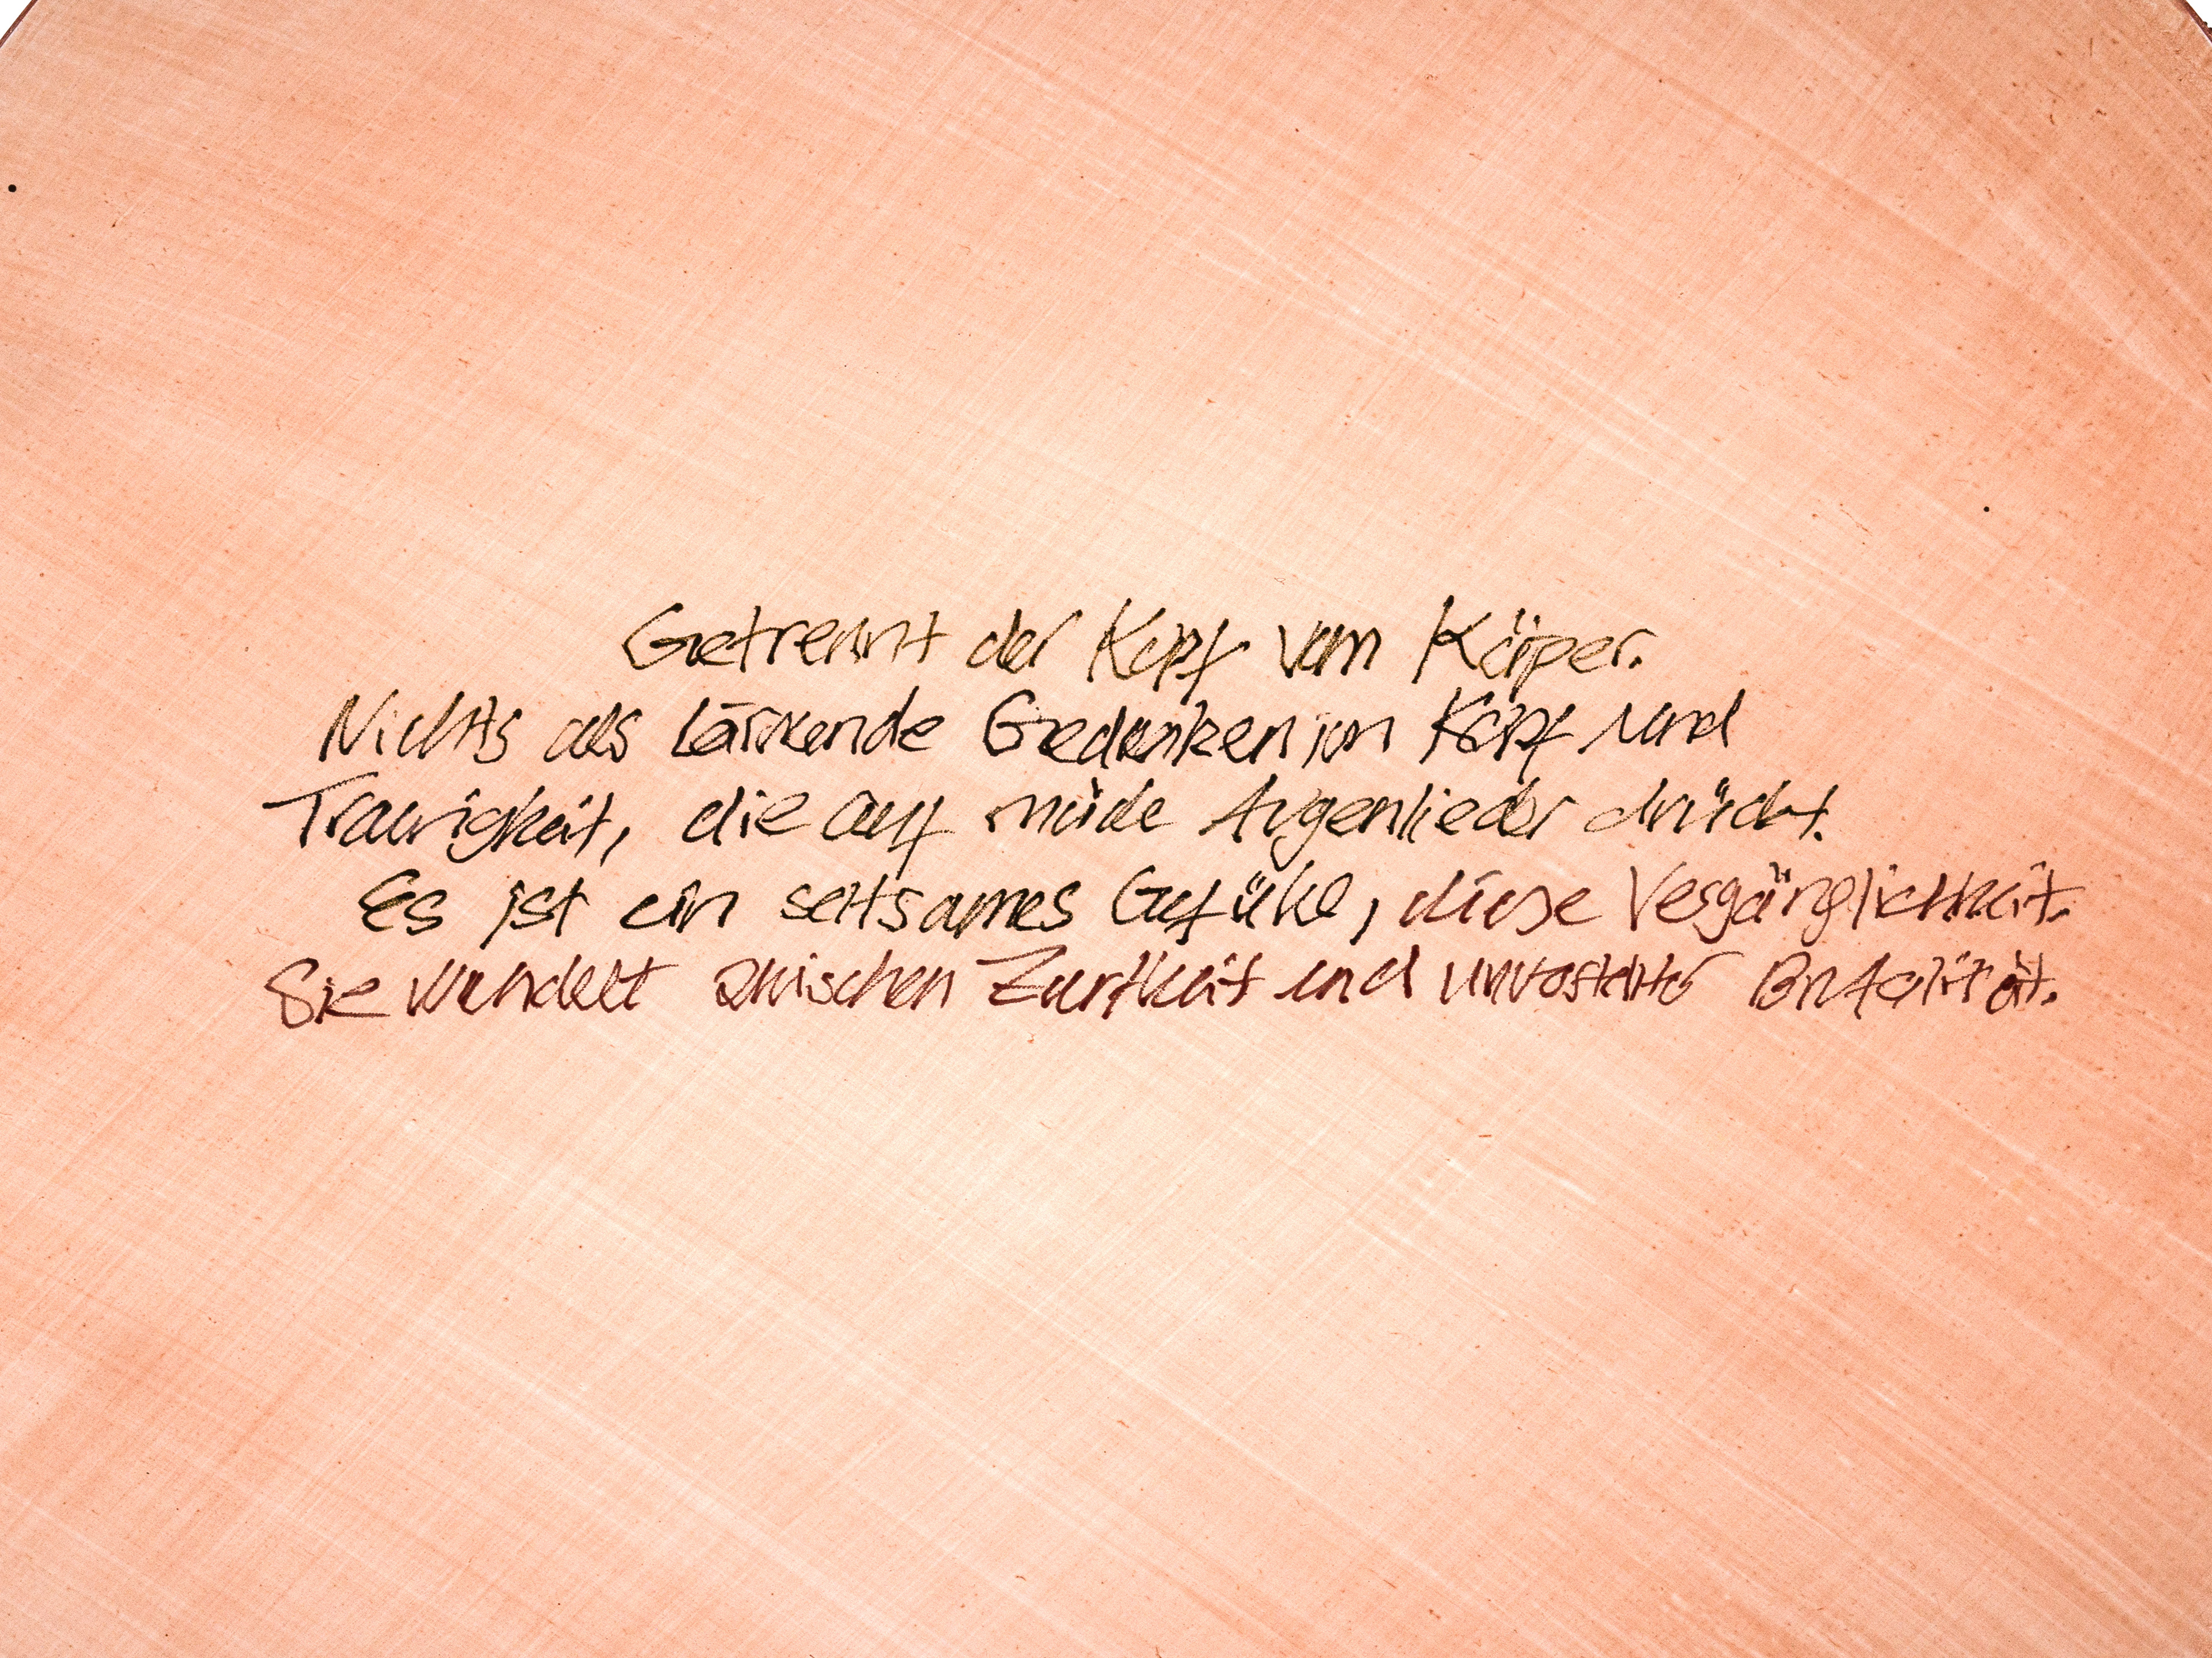 Getrennt der Kopf vom Körper.
Nichts als lärmende Gedanken im Kopf und
Traurigkeit, die auf müde Augenlieder drückt.
Es ist ein seltsames Gefühl, diese Vergänglichkeit.
Sie wandelt zwischen Zartheit und Brutalität.